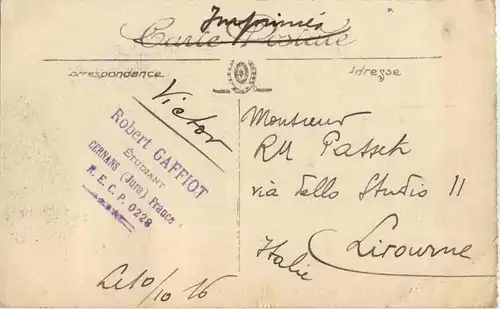 Imprimés
Carte Postale
Correspondance
Adresse
Victor
Robert GAFFIOT
ÉTUDIANT
CERNANS (Jura) France
R. E. C. P. 0228
Monsieur
via dello Studio 11
Livourne
Italie